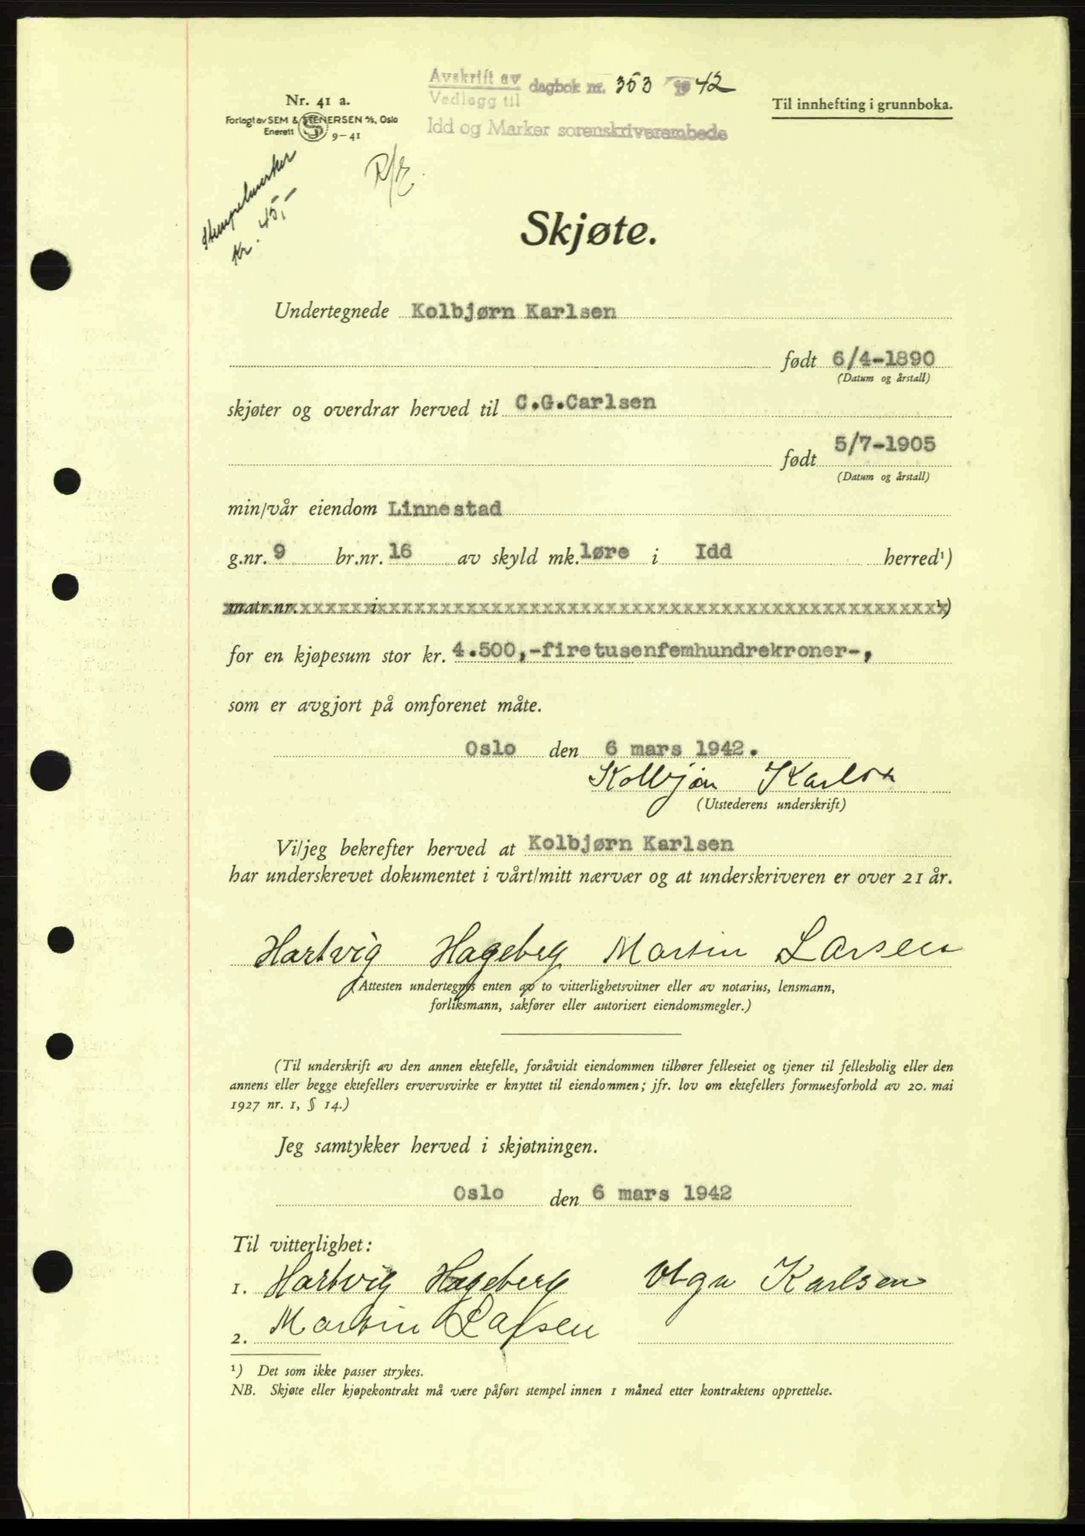 Avskrift av
Vedlegg til
dagbok nr. 353 1942
Idd og Marker sorenskriverembede
Nr. 41 a.
Forlagt av SEM & STENERSEN A/S, Oslo
Enerett
9-41
Til innhefting i grunnboka.
Stempelmerker
kr. 45,-
Skjøte.
Undertegnede Kolbjørn Karlsen
født 6/4-1890
(Datum og årstall)
skjøter og overdrar herved til C.G.Carlsen
født 5/7-1905
(Datum og årstall)
min/vår eiendom Linnestad
g.nr. 9 br.nr. 16 av skyld mk. løre i Idd herred¹)
matr.nr.xxxxxxixxxxxxxxxxxxxxxxxxxxxxxxxxxxxxxxxxxxx¹)
for en kjøpesum stor kr. 4.500,-firetusenfemhundrekroner-,
som er avgjort på omforenet måte.
Oslo den 6 mars 1942.
Kolbjørn Karlsen
(Utstederens underskrift)
Vi/jeg bekrefter herved at Kolbjørn Karlsen
har underskrevet dokumentet i vårt/mitt nærvær og at underskriveren er over 21 år.
Hartvig Hageberg Martin Larsen
(Attesten undertegnes enten av to vitterlighetsvitner eller av notarius, lensmann,
forliksmann, sakfører eller autorisert eiendomsmegler.)
(Til underskrift av den annen ektefelle, forsåvidt eiendommen tilhører felleseiet og tjener til fellesbolig eller den
annens eller begge ektefellers ervervsvirke er knyttet til eiendommen; jfr. lov om ektefellers formuesforhold av 20. mai
1927 nr. 1, § 14.)
Jeg samtykker herved i skjøtningen.
Oslo den 6 mars 1942
Til vitterlighet:
1. Hartvig Hageberg Olga Karlsen
2. Martin Larsen
¹) Det som ikke passer strykes.
NB. Skjøte eller kjøpekontrakt må være påført stempel innen 1 måned etter kontraktens opprettelse.